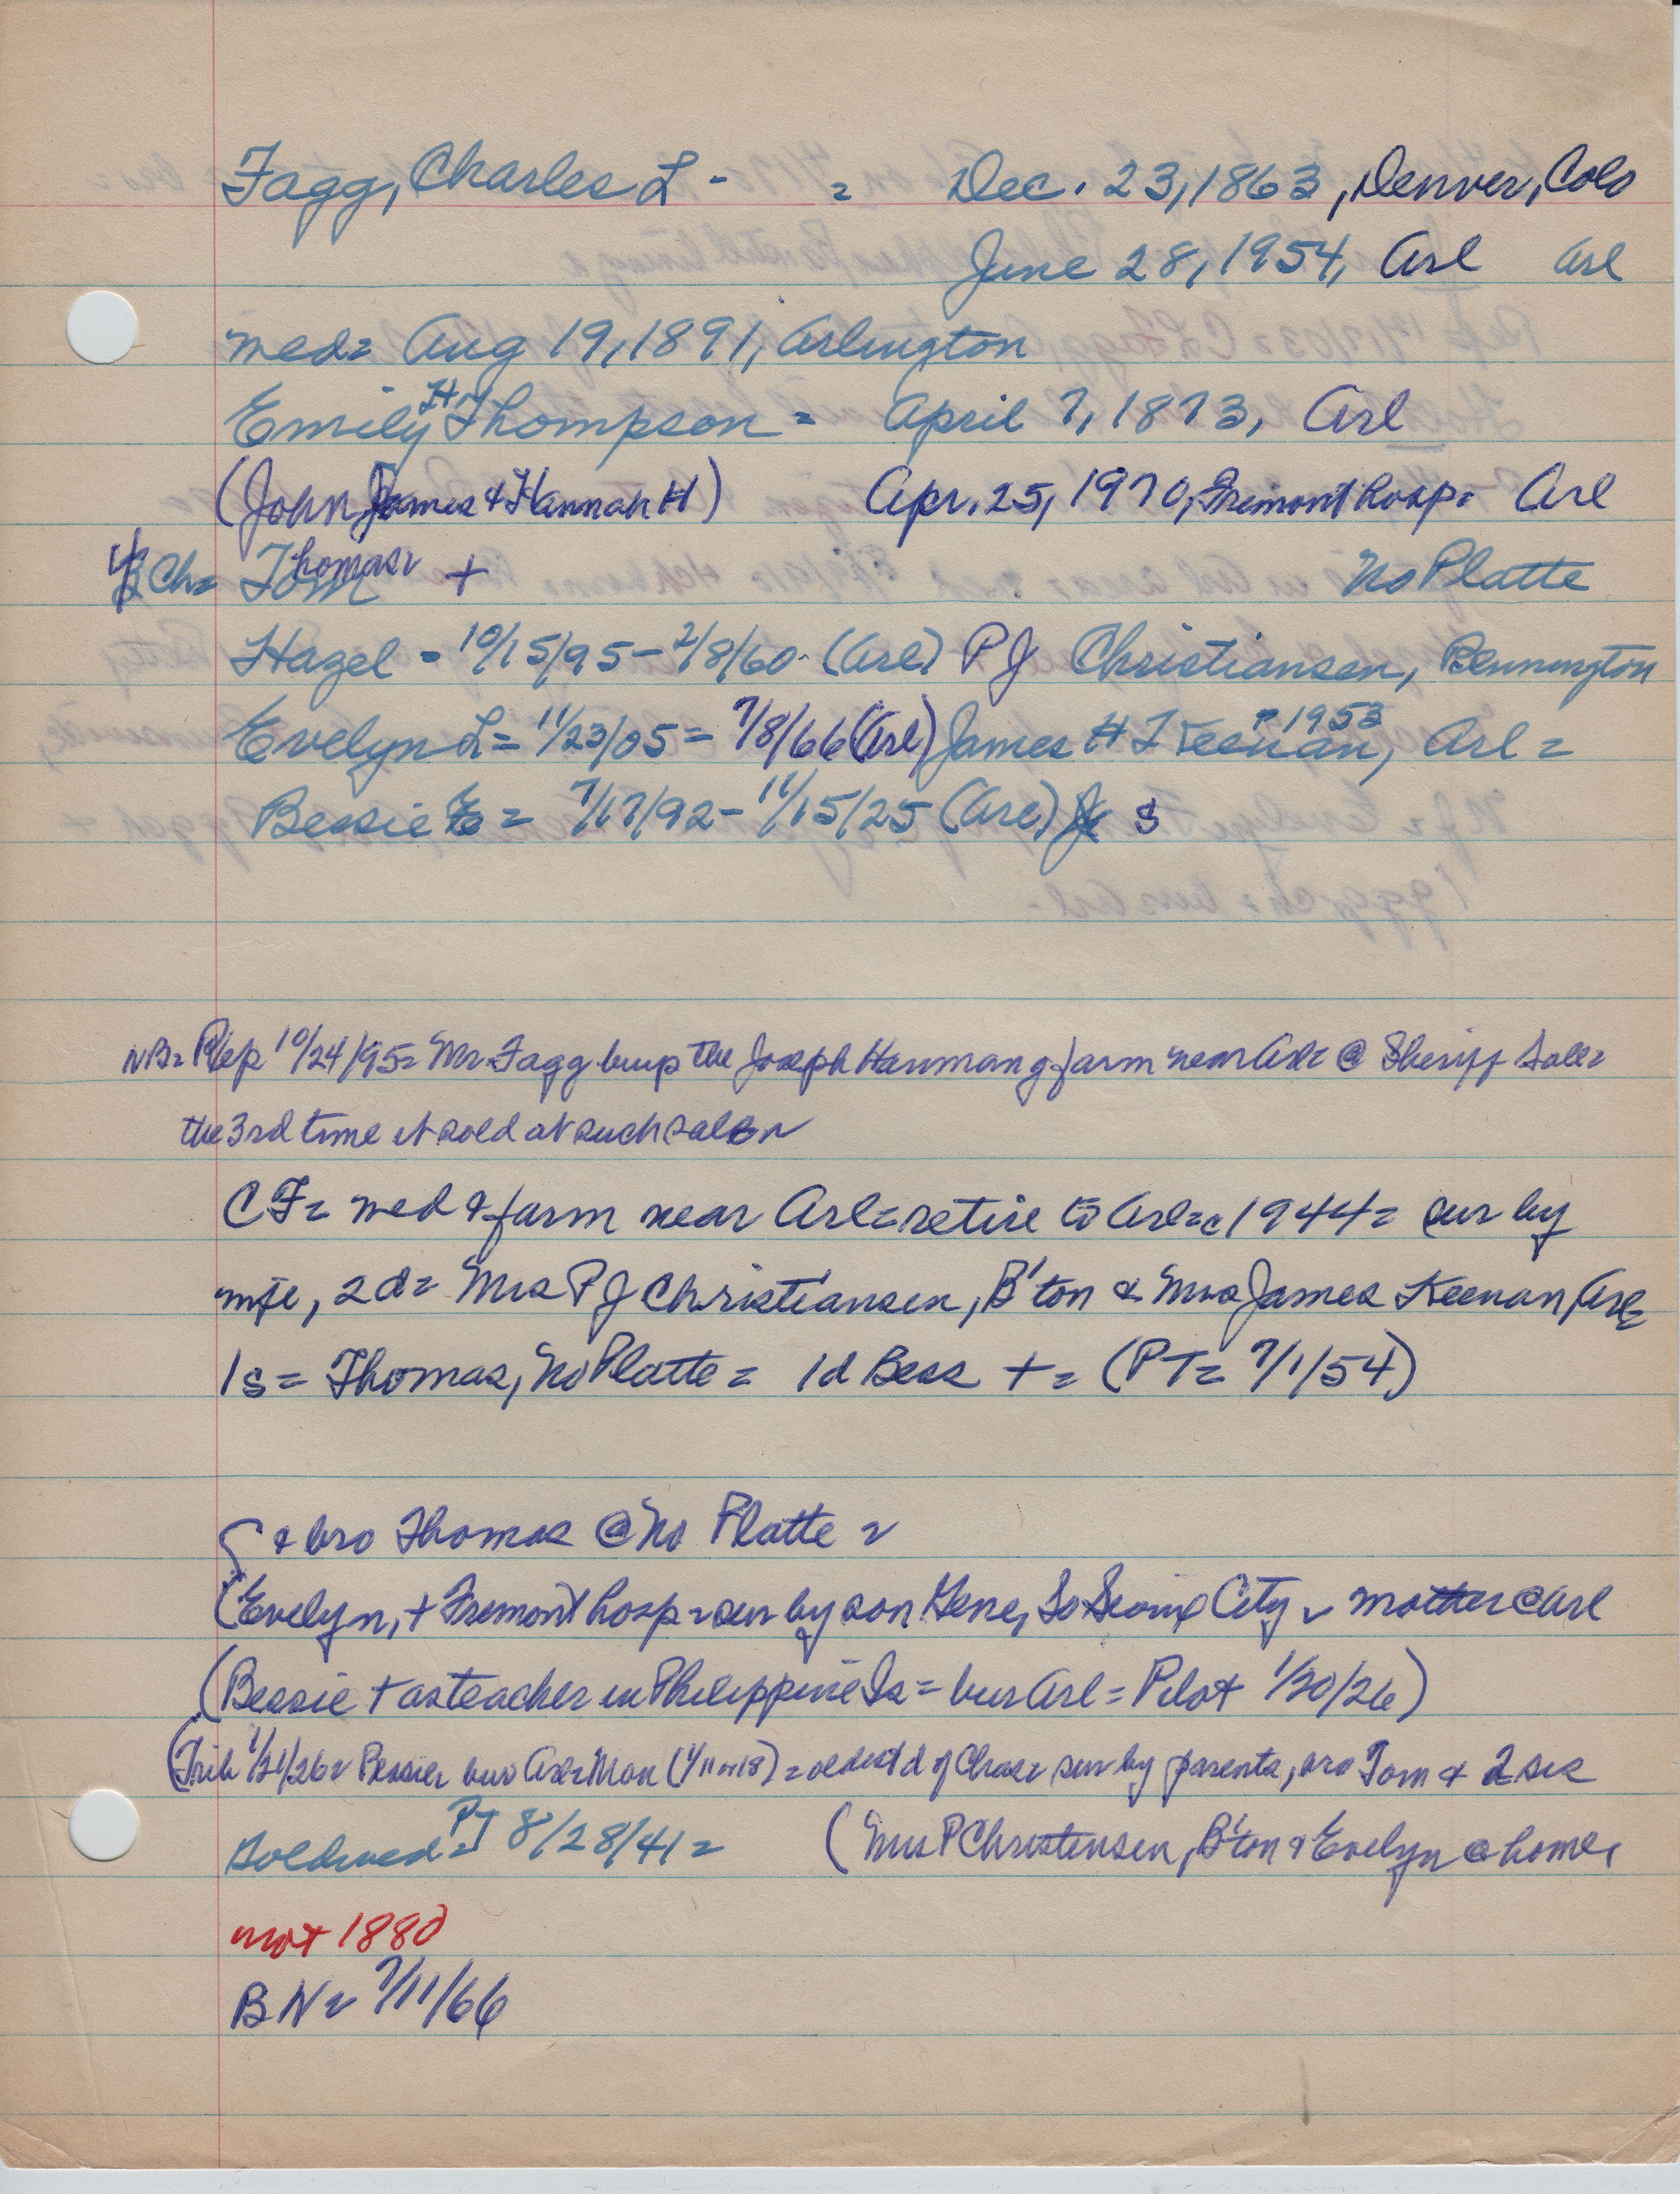 Fagg, Charles L - = Dec. 23, 1863, Denver, Colo
June 28, 1954, Arl Arl
med= Aug 19, 1891, Arlington
Emily H Thompson = April 7, 1873, Arl
(John James & Hannah H) Apr. 25, 1970, Fremont hosp= Arl
4 Ch= Thomas + No Platte
Hazel = 10/15/95 - 2/8/60 - (Arl) P J Christiansen, Bennington
Evelyn L = 11/23/05 = 7/8/66 (Arl) James H Keenan, 1953 Arl =
Bessie E = 7/17/92 - 11/15/25 (Arl) S
NB= Rep 10/24/95= Mr Fagg buys the Joseph farm near Arl= @ Sheriff Sale=
the 3rd time it sold at such sale
CF= med & farm near Arl= retire to Arl= c 1944= sur by
wife, 2d= Mrs P J Christiansen, B'ton & Mrs James Keenan, Arl=
1s = Thomas, No Platte = 1d Bess + = (PT= 7/1/54)
& bro Thomas @ No Platte =
(Evelyn, + Fremont hosp = sur by son Gene, So Sioux City = mother @ Arl
(Bessie + as teacher in Philippine Is = bur Arl = Pilot 1/20/26)
(Trib 1/21/26= Bessie= bur Arl= Mon (1/11 or 18) = oldest d of Chas= sur by parents, bro Tom & 2 sis
Gold wed= PT 8/28/41= (Mrs P Christensen, B'ton & Evelyn @ home,
not 1880
BN= 7/11/66